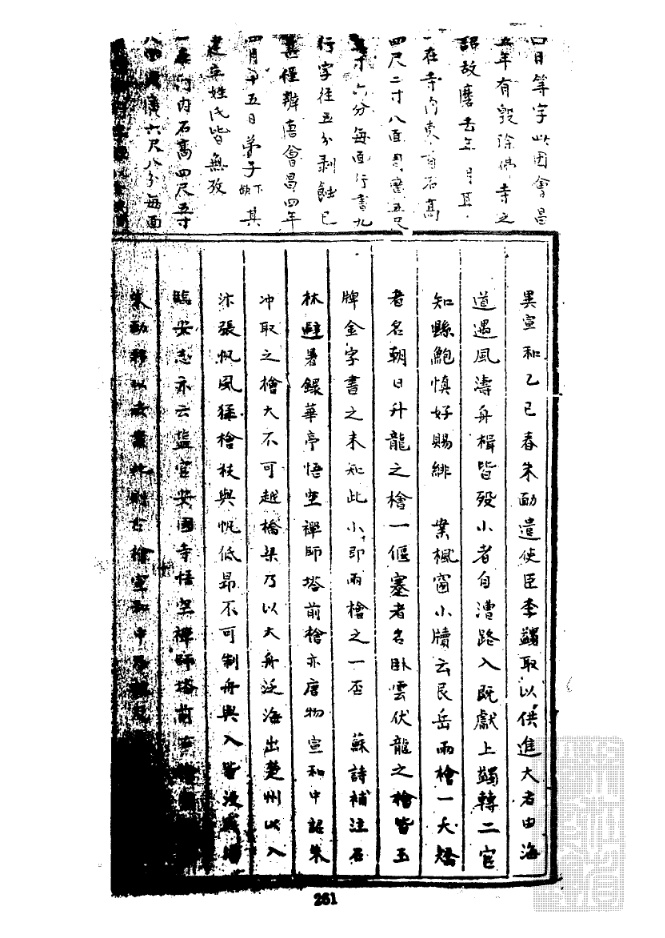 口日等字此因會昌
五年有毀除佛寺之
詔故磨去年月耳
一在寺內東
石高
四尺二寸八面周廣五尺
寸六分每面行書九
行字徑五分剥蝕已
甚僅辨唐會昌四年
四月廿五日弟子缺下其
建立姓氏皆無攷
門內石高四尺五寸
廣六尺八分每面
異宣和乙巳春朱勔遣使臣李蠲取以供進大者由海
道遇風濤舟楫皆歿小者自漕路入既獻上蠲轉二官
知縣鮑慎好賜緋 案楓窗小牘云艮岳兩檜一夭矯
者名朝日升龍之檜一偃蹇者名卧雲伏龍之檜皆玉
牌金字書之未知此小即兩檜之一否 蘇詩補注石
林避暑錄華亭悟空禪師塔前檜亦唐物宣和中詔朱
冲取之檜大不可越橋梁乃以大舟泛海出楚州以入
汴張帆風猛檜枝與帆低昂不可制舟與人皆没咸淳
臨安志亦云盐官安國寺悟空禪師塔前
朱勔
古檜宣和中
261